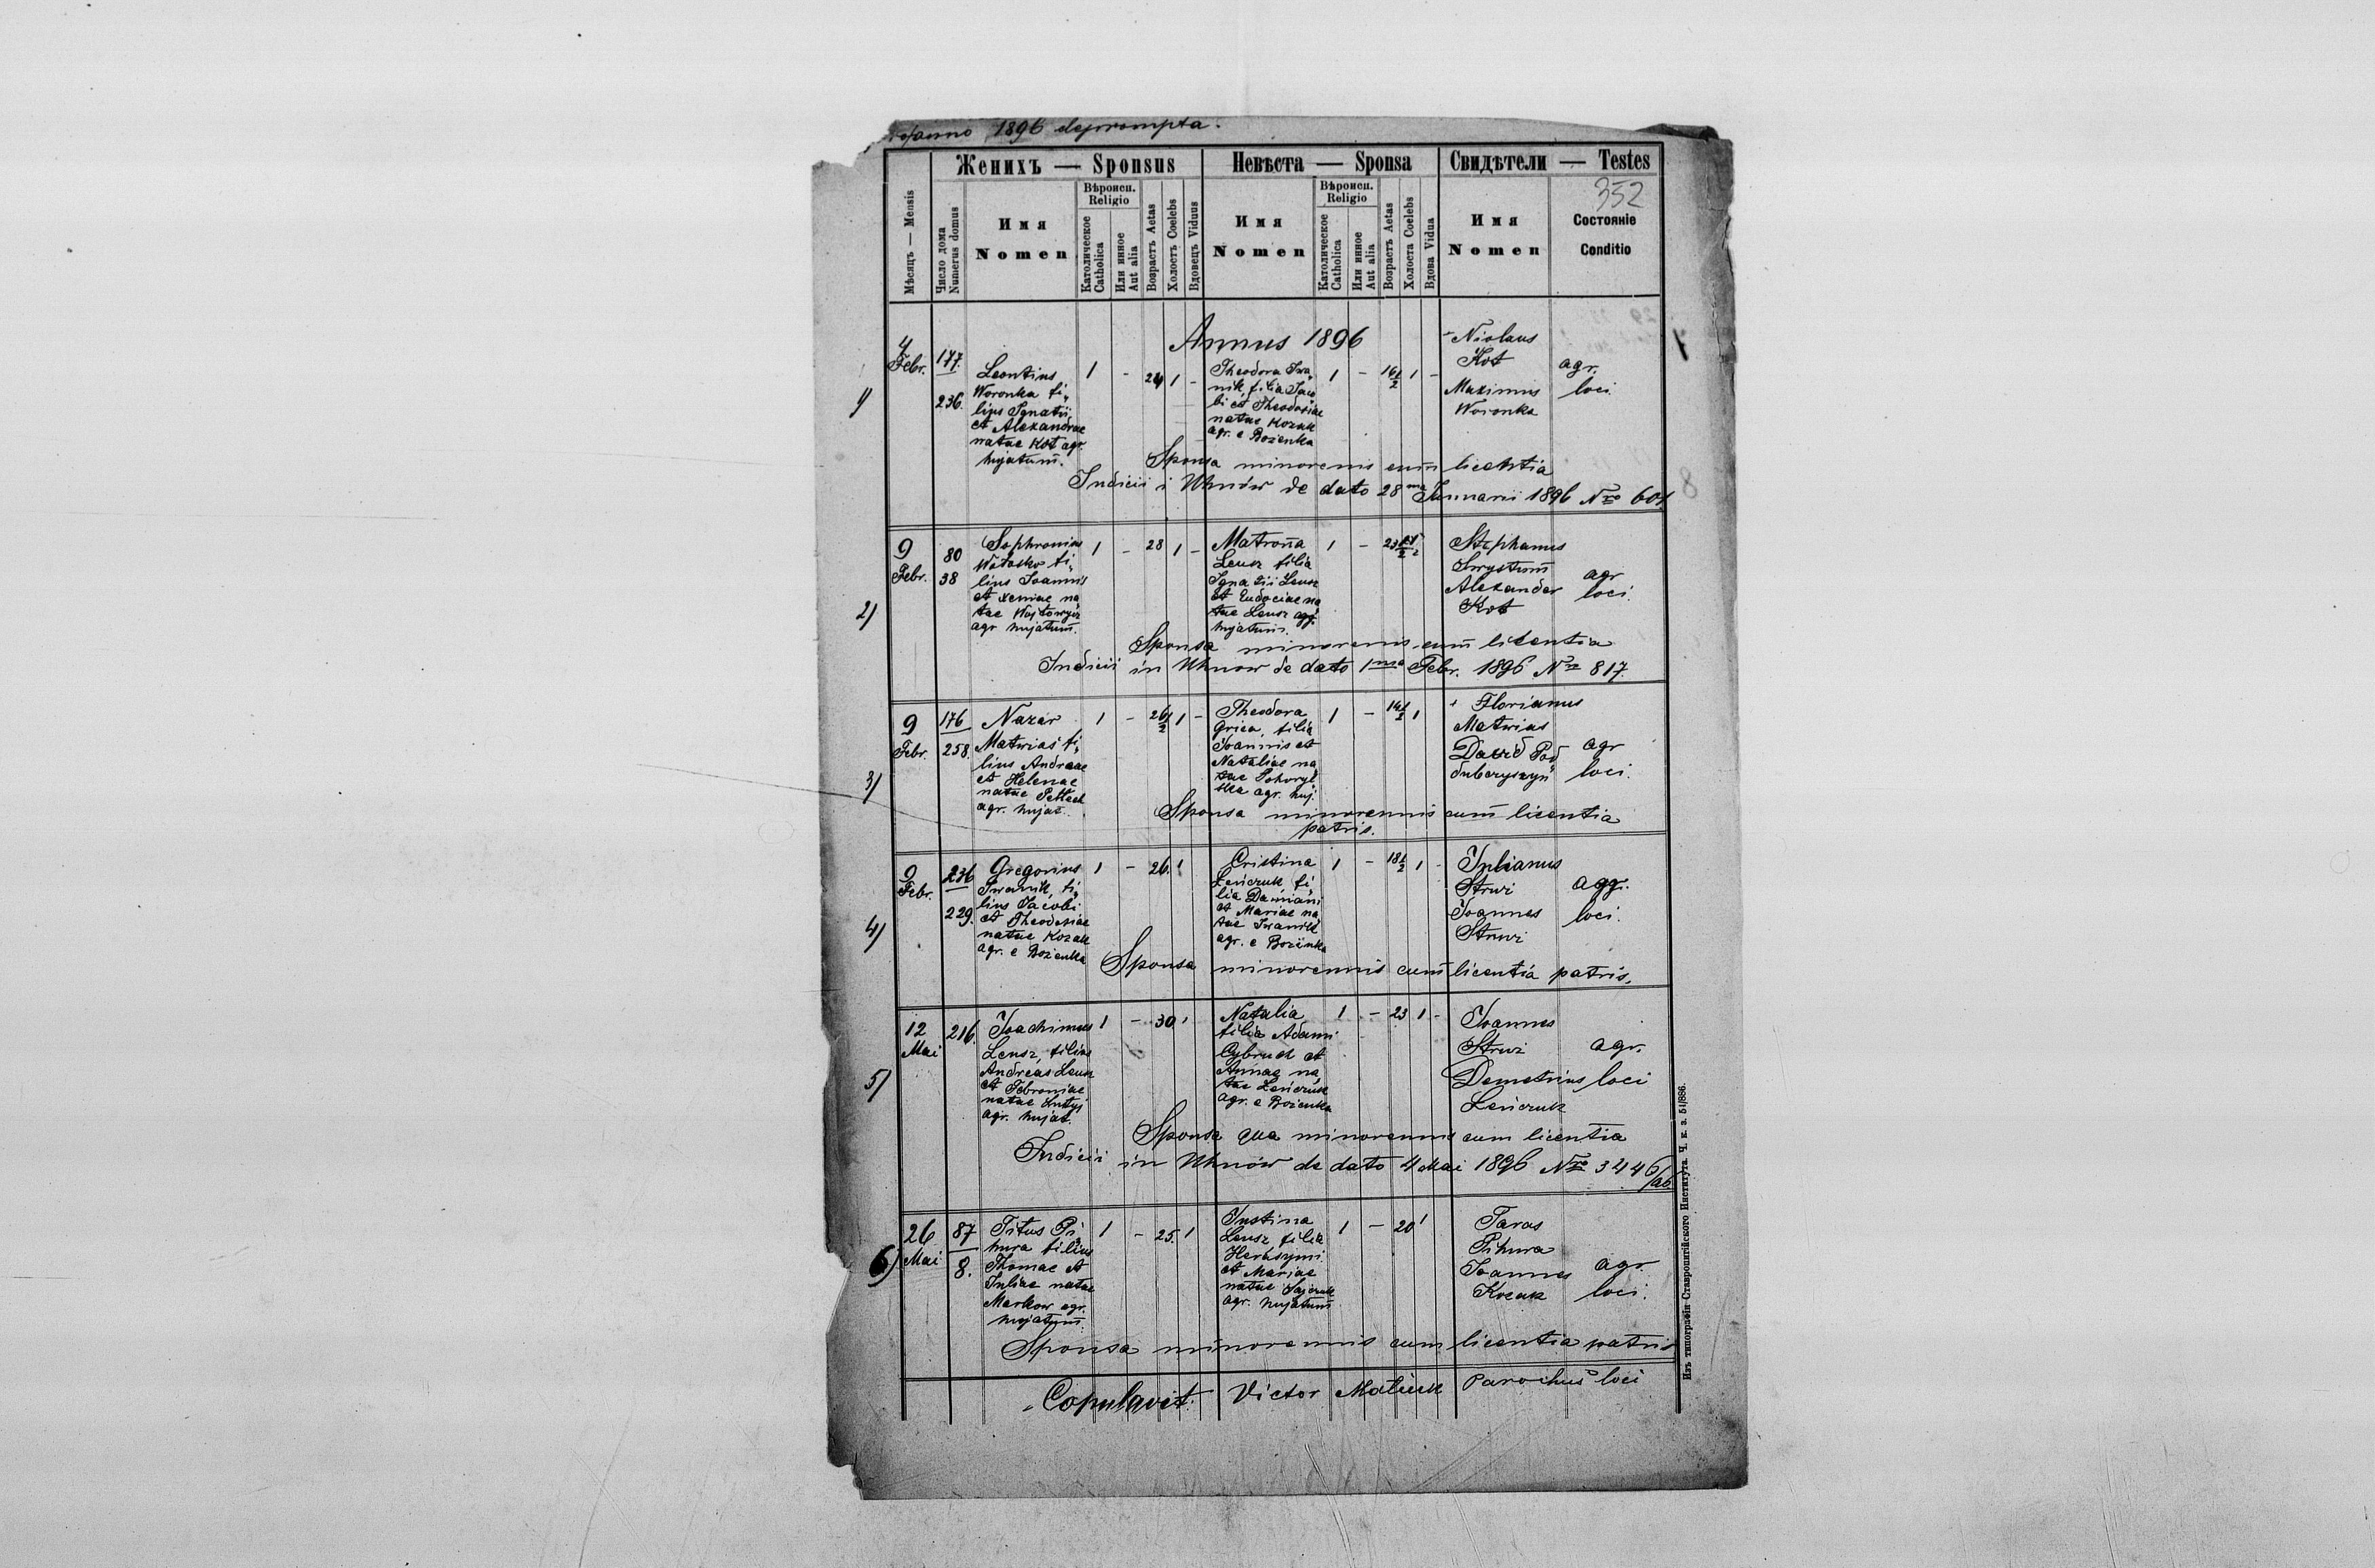 anno 1896 deprompta.
Женихъ — Sponsus
Невѣста — Sponsa
Свидѣтели — Testes
352
Мѣсяцъ — Mensis
Число дома
Numerus domus
Имя
Nomen
Вѣроисп.
Religio
Католическое
Catholica
Или инное
Aut alia
Возрастъ Aetas
Холостъ Coelebs
Вдовецъ Viduus
Имя
Nomen
Вѣроисп.
Religio
Католическое
Catholica
Или инное
Aut alia
Возрастъ Aetas
Холоста Coelebs
Вдова Vidua
Имя
Nomen
Состояніе
Conditio
Annus 1896
1)
4
Febr.
177.
236.
Leontius
Woronka fi„
lius Ignatii
et Alexandrae
natae Kot agr.
hujatum.
1 - 24 1 -
Theodora Iwa„
nik filia Jaco
bi et Theodosiae
natae Kozak
agr. e Bożenka
1 - 16 1/2 1 -
Niolaus
Kot
Maximus
Woronka
agr.
loci.
Sponsa minorenis cum licentia
Judicii i Uhnów de dato 28 ma Januarii 1896 Nro 601
2)
9
Febr.
80
38
Sophronius
Wołosko fi„
lius Joannis
et Xeniae na
tae Wojtowycz
agr hujatum.
1 - 28 1 -
Matrona
Leusz filia
Ignatii Leusz
et Eudociae na
tae Leusz agr.
hujatum.
1 - 23
Stephanus
Alexander
Kot
agr
loci.
Sponsa minorenis cum licentia
Judicii in Uhnow de dato 1ma Febr. 1896 Nro 817.
3)
9
Febr.
176
258.
Nazar
Matwias fi„
lius Andreae
et Helenae
natae
agr. hujat.
1 - 26 1/2 1 -
Theodora
Grica, filia
Joannis et
Nataliae na
tae
agr. huj.
1 - 1/2 1
Florianus
Matwias
David Pod
dubczyszyn
agr
loci.
Sponsa minorennis cum licentia
patris.
4)
9
Febr.
236
229.
Gregorius
Iwanik, fi„
lius Jacobi
et Theodosiae
natae Kozak
agr. e Bożenka
1 - 26. 1
Cristina
Leńczuk fi„
lia Damiani
et Mariae na
tae Iwanik
agr. e Bożenka
1 - 18 1/2 1
Julianus
Struś
Joannes
Struś
agr.
loci.
Sponsa minorennis cum licentia patris.
5)
12
Mai
216.
Joachimus
Leusz, filius
Andreas Leusz
et Febroniae
natae
agr. hujat.
1 - 30. 1
Natalia
filia Adami
Cybruch et
Annae na
tae Leńczuk
agr. e Bożenka
1 - 23 1 -
Joannes
Struś
Demetrius
Leńczuk
agr.
loci
Sponsa qua minorennis cum licentia
Judicii in Uhnów de dato 4 Mai 1896 Nro 3446/96.
6)
26
Mai
87
8.
Titus Pi„
hura filius
Thomae et
Juliae natae
Markow agr.
hujatum.
1 - 25. 1
Justina
Leusz filia
Herasymi
et Mariae
natae
agr. hujatum
1 - 20 1
Taras
Pihura
Joannes
Kozak
agr.
loci.
Sponsa minorennis cum licentia patris
Copulavit: Victor Maliuk Parochus loci
Изъ типографіи Ставропигійского Института. Ч. к. з. 51/886.